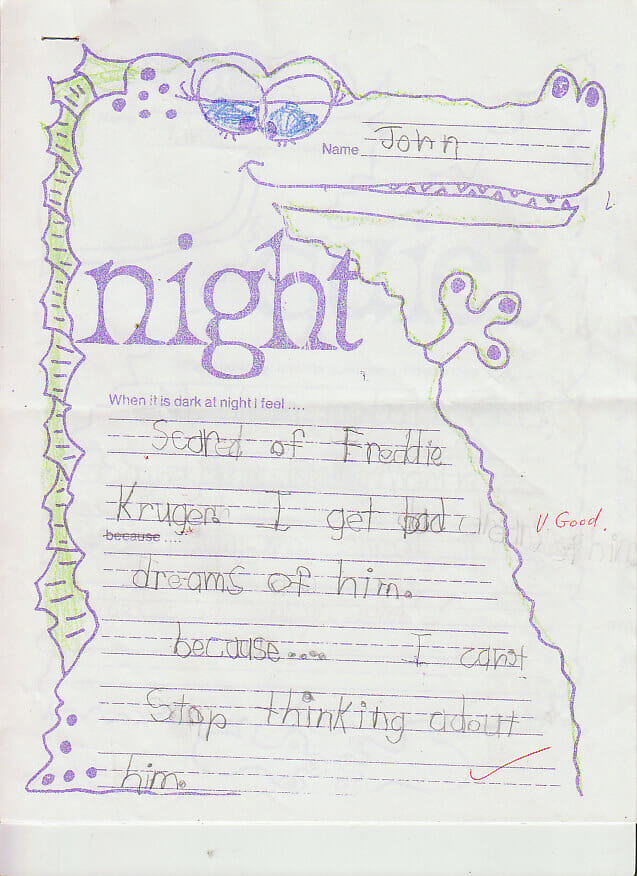 Name John
night
When it is dark at night I feel ....
Scared of Freddie
Kruger. I get bad
V. Good.
because ....
dreams of him.
because.... I canst
Stop thinking adout
him.